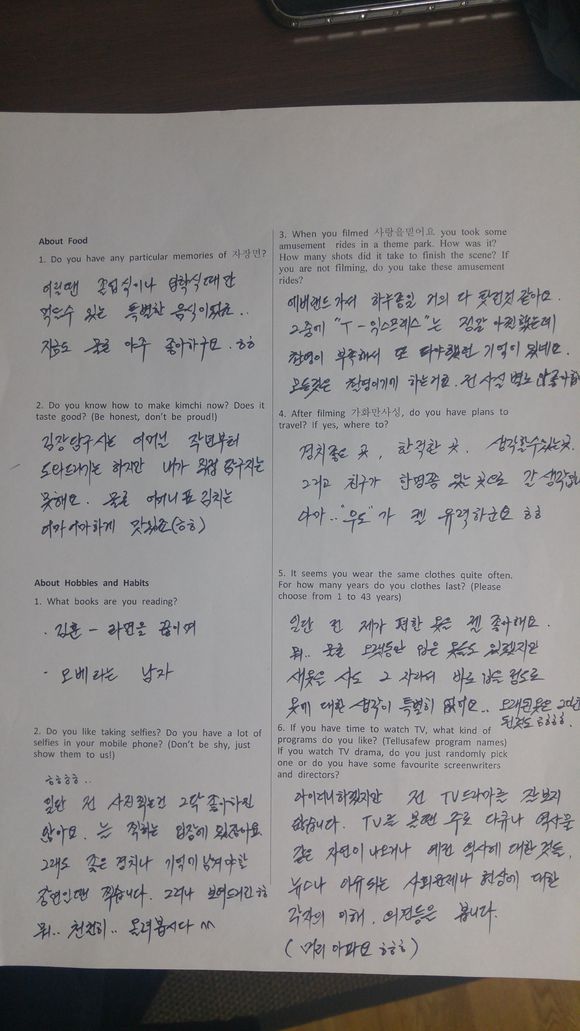 About Food
1. Do you have any particular memories of 자장면?
어릴땐 졸업식이나 입학식때만
먹을수 있는 특별한 음식이였죠..
지금도 물론 아주 좋아하구요. ㅎㅎ
2. Do you know how to make kimchi now? Does it
taste good? (Be honest, don't be proud!)
김장담구시는 어머닐 작년부터
도와드리기는 하지만 내가 직접 담구지는
못해요. 물론 어머니표 김치는
어마어마하게 맛있죠(ㅎㅎ)
About Hobbles and Habits
1. What books are you reading?
· 김훈 - 라면을 끓이며
· 오베라는 남자
2. Do you like taking selfies? Do you have a lot of
selfies in your mobile phone? (Don't be shy, just
show them to us!)
ㅎㅎㅎㅎ..
일단 전 사진찍는걸 그닥 좋아하진
않아요. 늘 찍히는 입장에 있잖아요
그래도 좋은 경치나 기억에 남겨야할
장면일땐 찍습니다. 그러나 보여드리긴 ㅎㅎ
뭐.. 천천히.. 올려봅시다 ^^
3. When you filmed 사랑을믿어요 you took some
amusement rides in a theme park. How was it?
How many shots did it take to finish the scene? If
you are not filming, do you take these amusement
rides?
에버랜드가서 하루종일 거의 다 탔던것 같아요.
그중에 "T-익스프레스"는 정말 아찔했는데
촬영이 부족해서 또 타야했던 기억이 있네요.
모든것은 촬영이기에 하는거죠. 전 사실 별로 안좋아
4. After filming 가화만사성, do you have plans to
travel? If yes, where to?
경치좋은 곳, 한적한 곳. 생각할수있는곳.
그리고 친구가 한명쯤 있는 곳으로 갈 생각입니
아마.. "우도"가 젤 유력하군요 ㅎㅎ
5. It seems you wear the same clothes quite often.
For how many years do you clothes last? (Please
choose from 1 to 43 years)
일단 전 제가 편한 옷을 젤 좋아해요.
뭐.. 물론 오랫동안 입은 옷들도 있겠지만
새옷을 사도 그 자리서 바로 입을 정도로
옷에 대한 생각이 특별히 없어요.. 오래된옷은 20년
된것도 ㅎㅎㅎㅎ
6. If you have time to watch TV, what kind of
programs do you like? (Tellusafew program names)
If you watch TV drama, do you just randomly pick
one or do you have some favourite screenwriters
and directors?
아이러니하겠지만 전 TV드라마를 잘 보지
않습니다. TV를 본땐 주로 다큐나 역사물
같은 자연이 나오거나 예전 역사에 대한것들,
뉴스나 이슈되는 사회문제나 현상에 대한
각자의 이해, 의견등은 봅니다.
(머리 아파요 ㅎㅎㅎ)